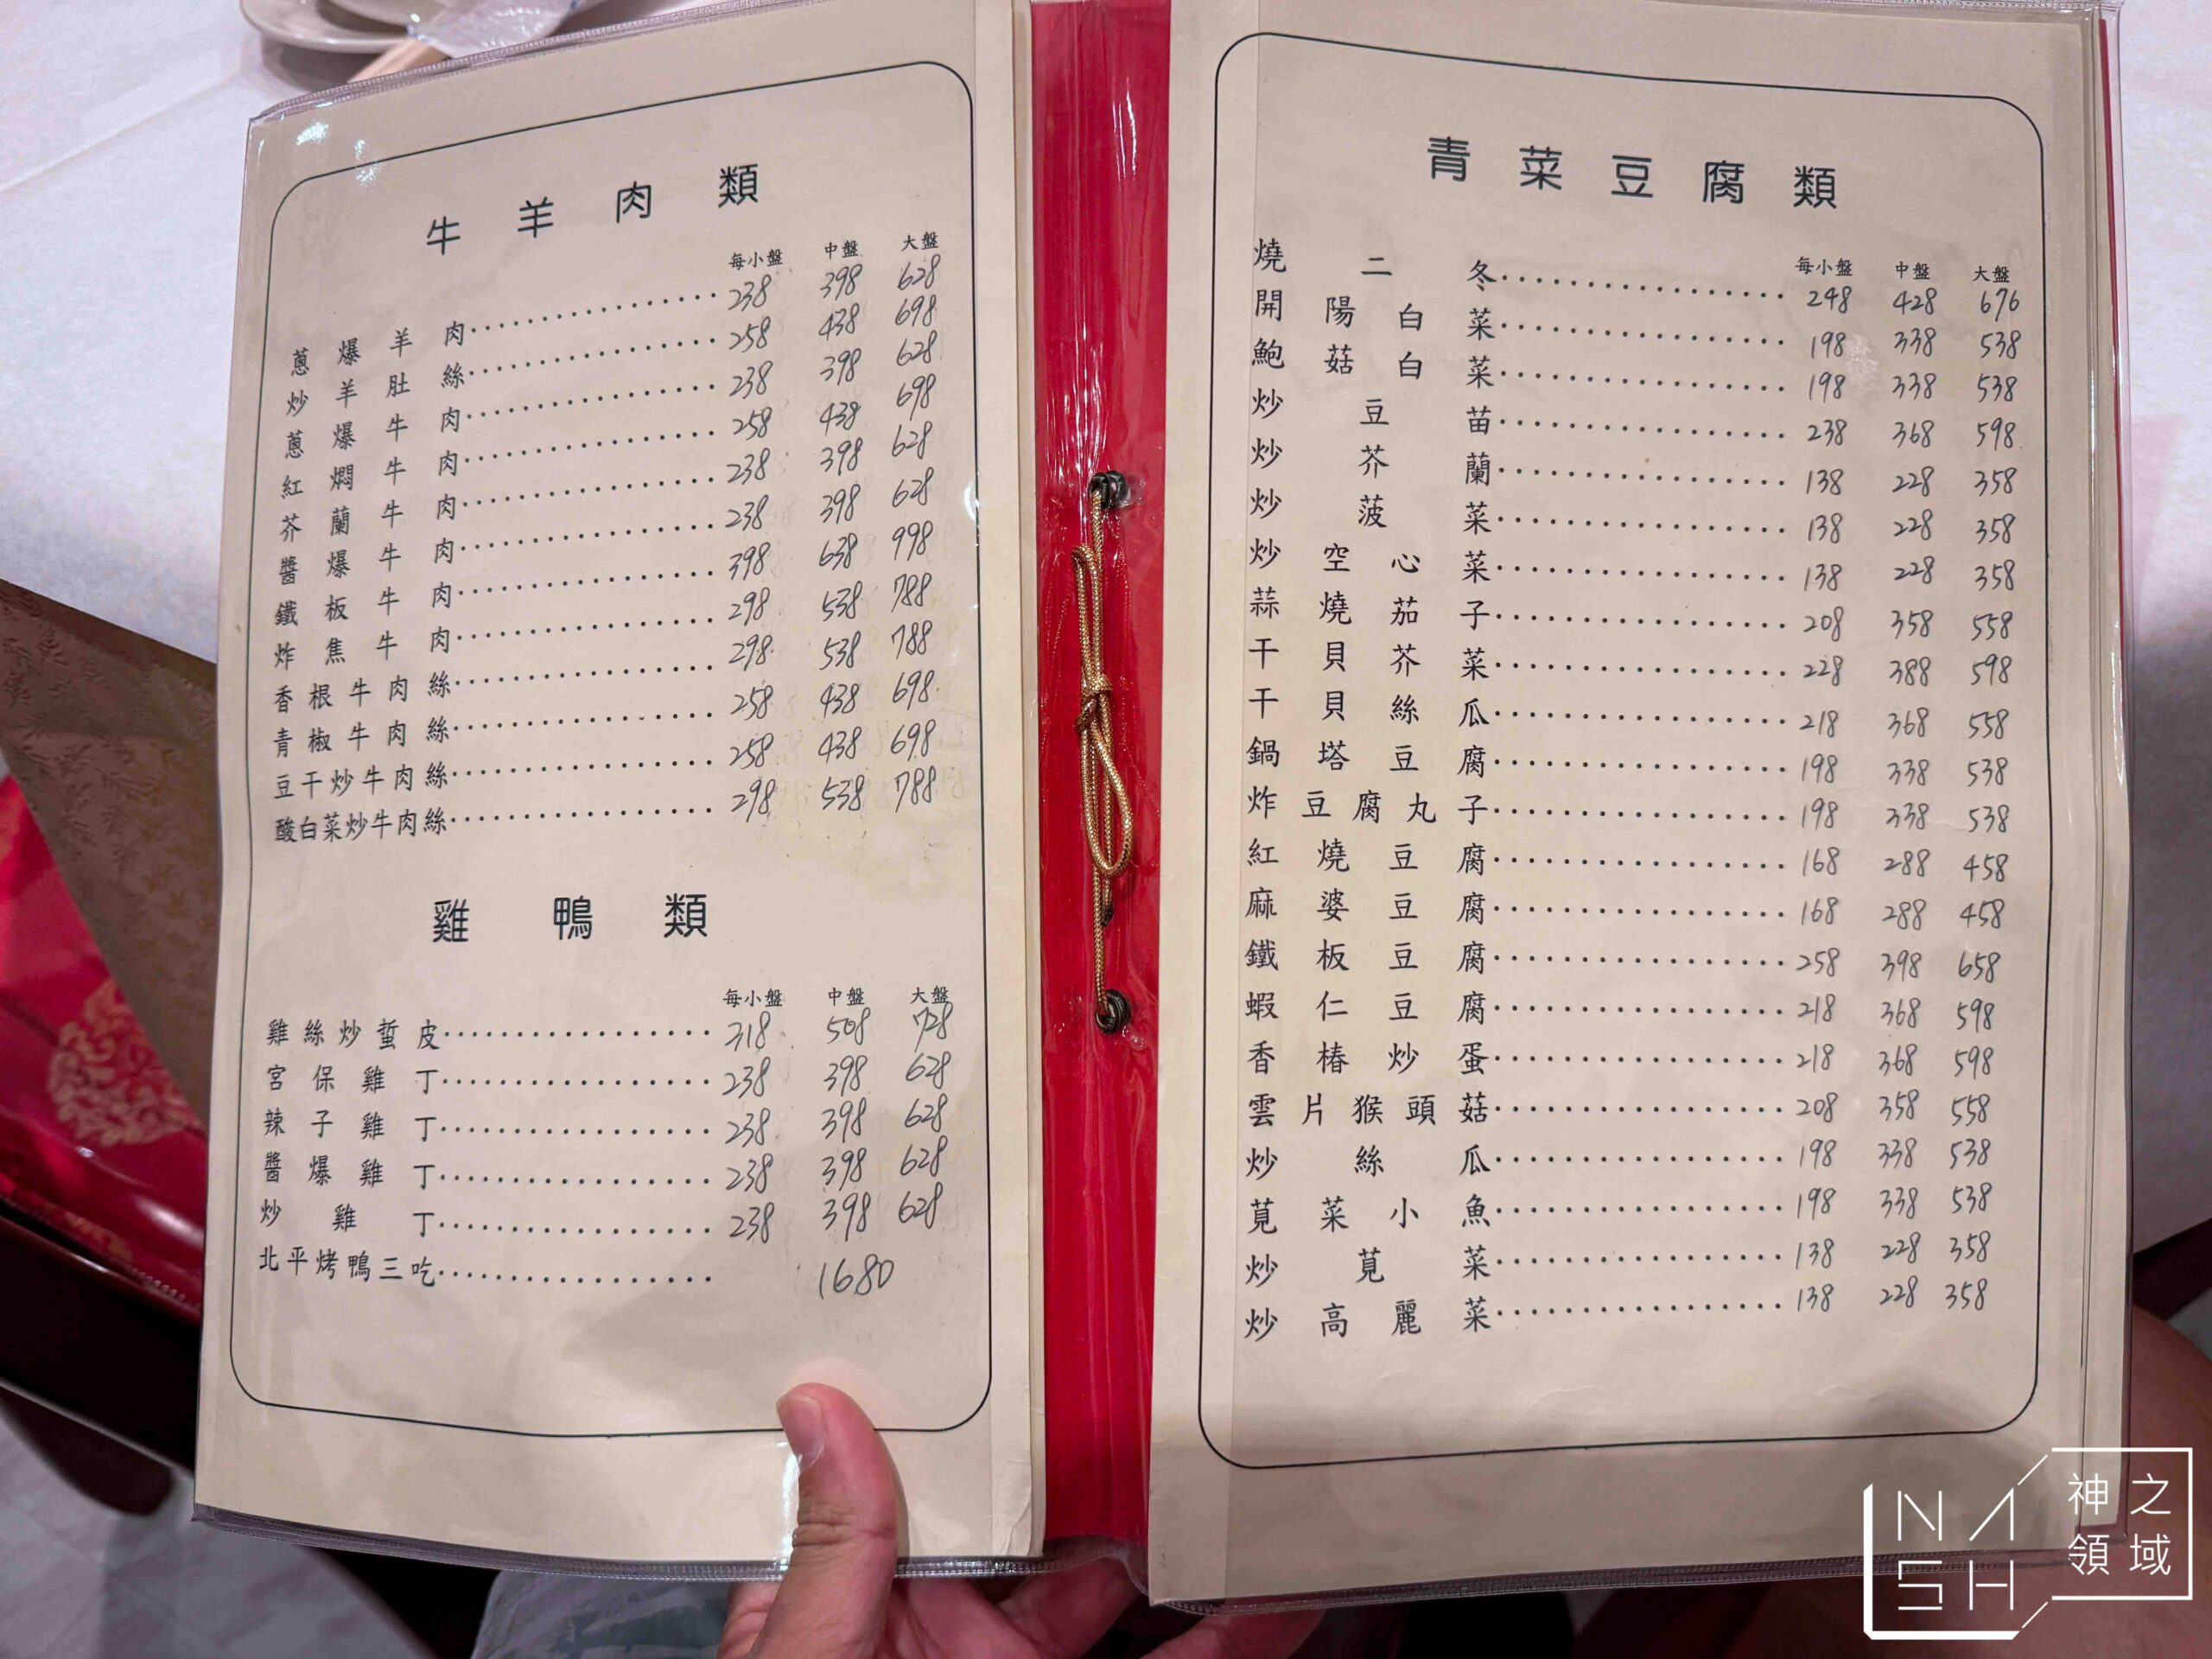 牛羊肉類
每小盤 中盤 大盤
蔥爆羊肉 238 398 628
炒羊肚絲 258 438 698
蔥爆牛肉 238 398 628
紅燜牛肉 258 438 698
芥蘭牛肉 238 398 628
醬爆牛肉 238 398 628
鐵板牛肉 398 638 998
炸焦牛肉 298 538 788
香根牛肉絲 298 538 788
青椒牛肉絲 258 438 698
豆干炒牛肉絲 258 438 698
酸白菜炒牛肉絲 298 538 788
雞鴨類
每小盤 中盤 大盤
雞絲炒蜇皮 318 508 728
宮保雞丁 238 398 628
辣子雞丁 238 398 628
醬爆雞丁 238 398 628
炒雞丁 238 398 628
北平烤鴨三吃 1680
青菜豆腐類
每小盤 中盤 大盤
燒二冬 248 428 676
開陽白菜 198 338 538
鮑菇白菜 198 338 538
炒豆苗 238 368 598
炒芥蘭 138 228 358
炒菠菜 138 228 358
炒空心菜 138 228 358
蒜燒茄子 208 358 558
干貝芥菜 228 388 598
干貝絲瓜 218 368 558
鍋塔豆腐 198 338 538
炸豆腐丸子 198 338 538
紅燒豆腐 168 288 458
麻婆豆腐 168 288 458
鐵板豆腐 258 398 658
蝦仁豆腐 218 368 598
香椿炒蛋 218 368 598
雲片猴頭菇 208 358 558
炒絲瓜 198 338 538
莧菜小魚 198 338 538
炒莧菜 138 228 358
炒高麗菜 138 228 358
NASH
神之領域